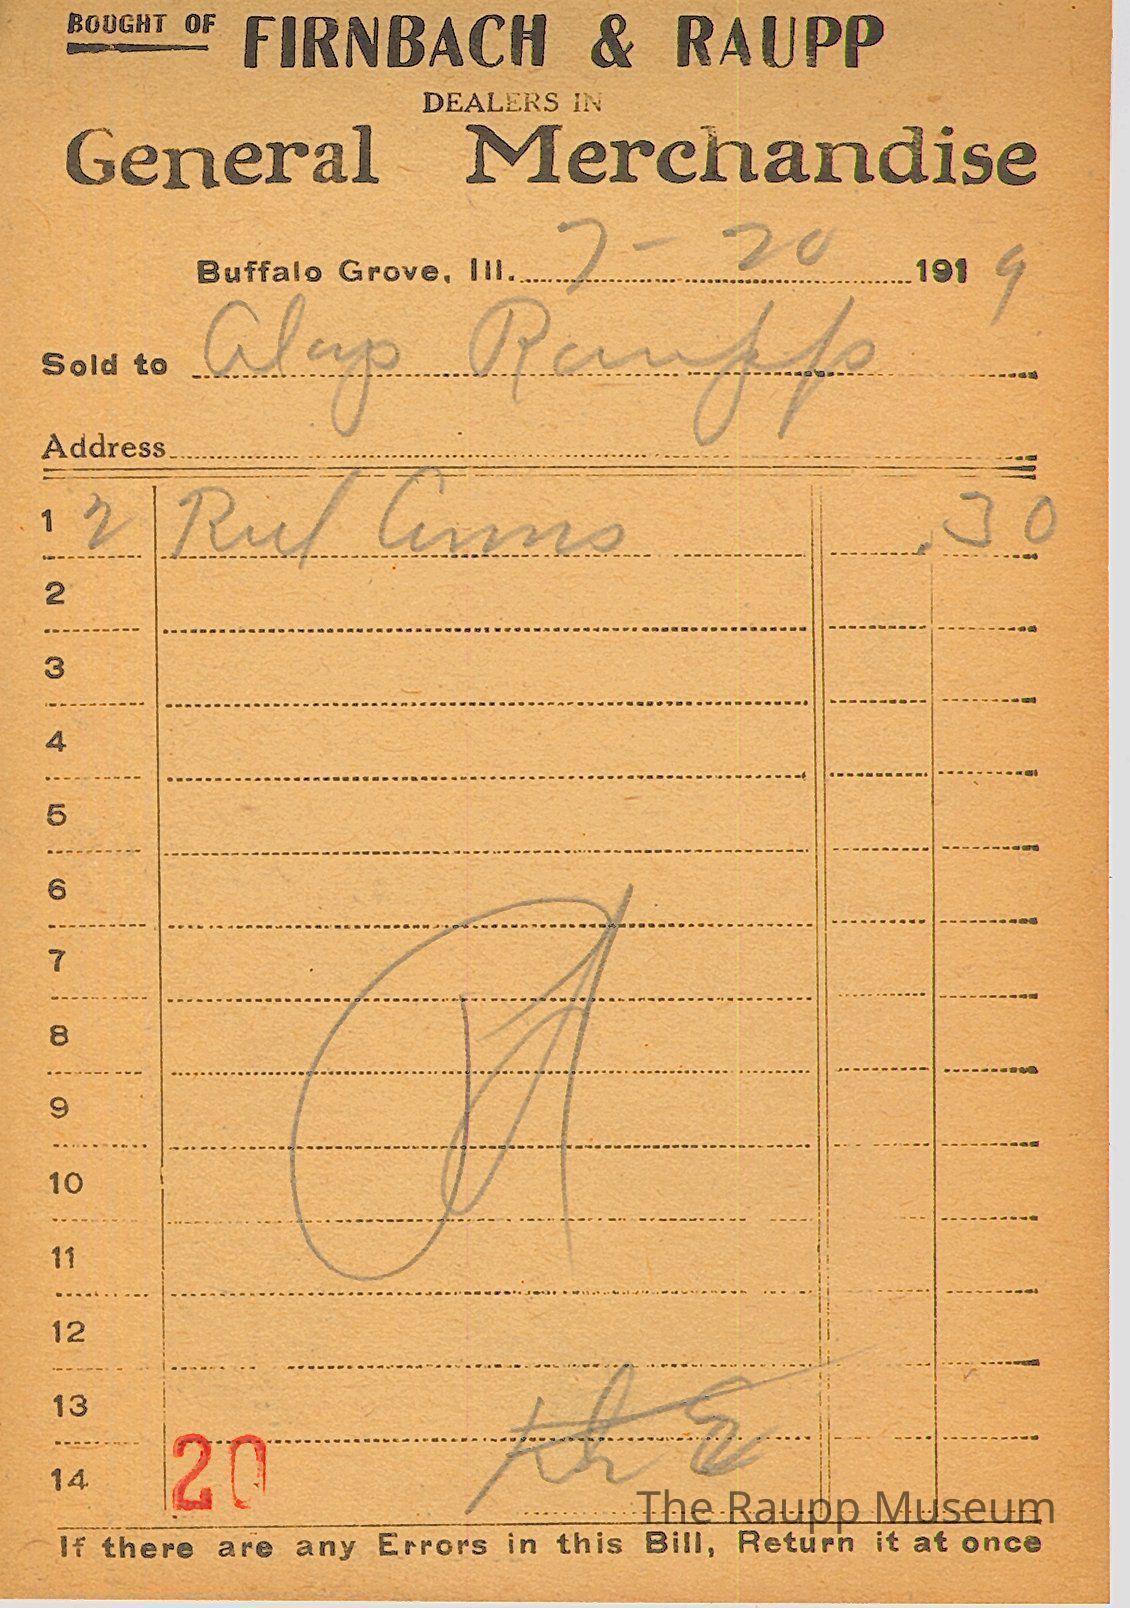 BOUGHT OF FIRNBACH & RAUPP
DEALERS IN
General Merchandise
Buffalo Grove, Ill. 7-20 1919
Sold to Aloys Raupp
Address
1 2 .30
2
3
4
5
6
7
8
9
10
11
12
13
14 20
The Raupp Museum
If there are any Errors in this Bill, Return it at once